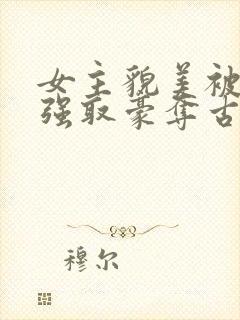 女主貌美被
强取豪夺古
穆尔